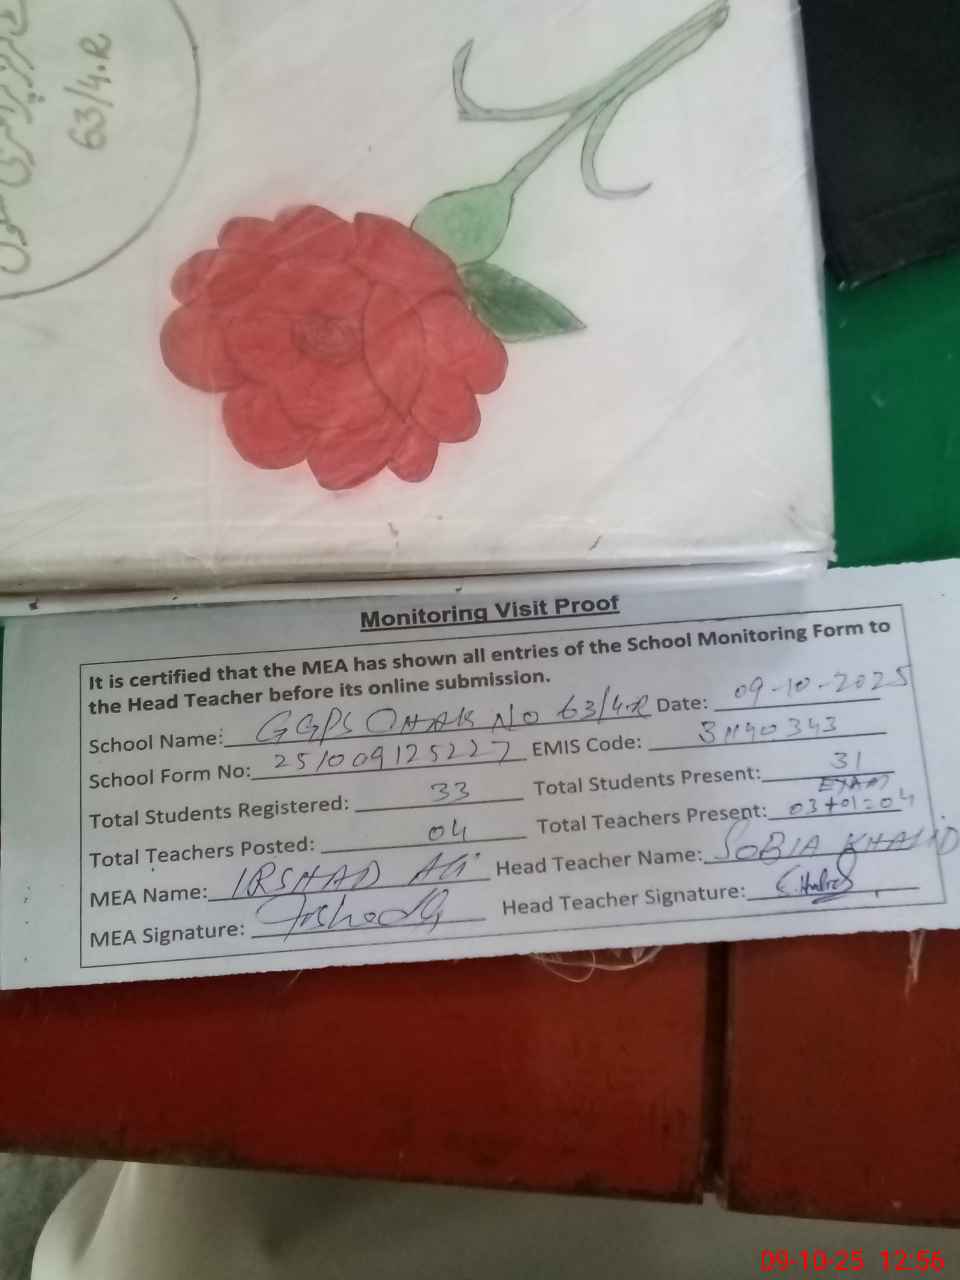 63/4.R
Monitoring Visit Proof
It is certified that the MEA has shown all entries of the School Monitoring Form to
the Head Teacher before its online submission.
School Name: GGPS CHAK NO 63/4.R Date: 09-10-2025
School Form No: 251009125227 EMIS Code: 31140343
Total Students Registered: 33 Total Students Present: 31
Total Teachers Posted: 04 Total Teachers Present: EXAM 03+01=04
MEA Name: IRSHAD Ali Head Teacher Name: SOBIA KHALID
MEA Signature: Head Teacher Signature:
09-10-25 12:56